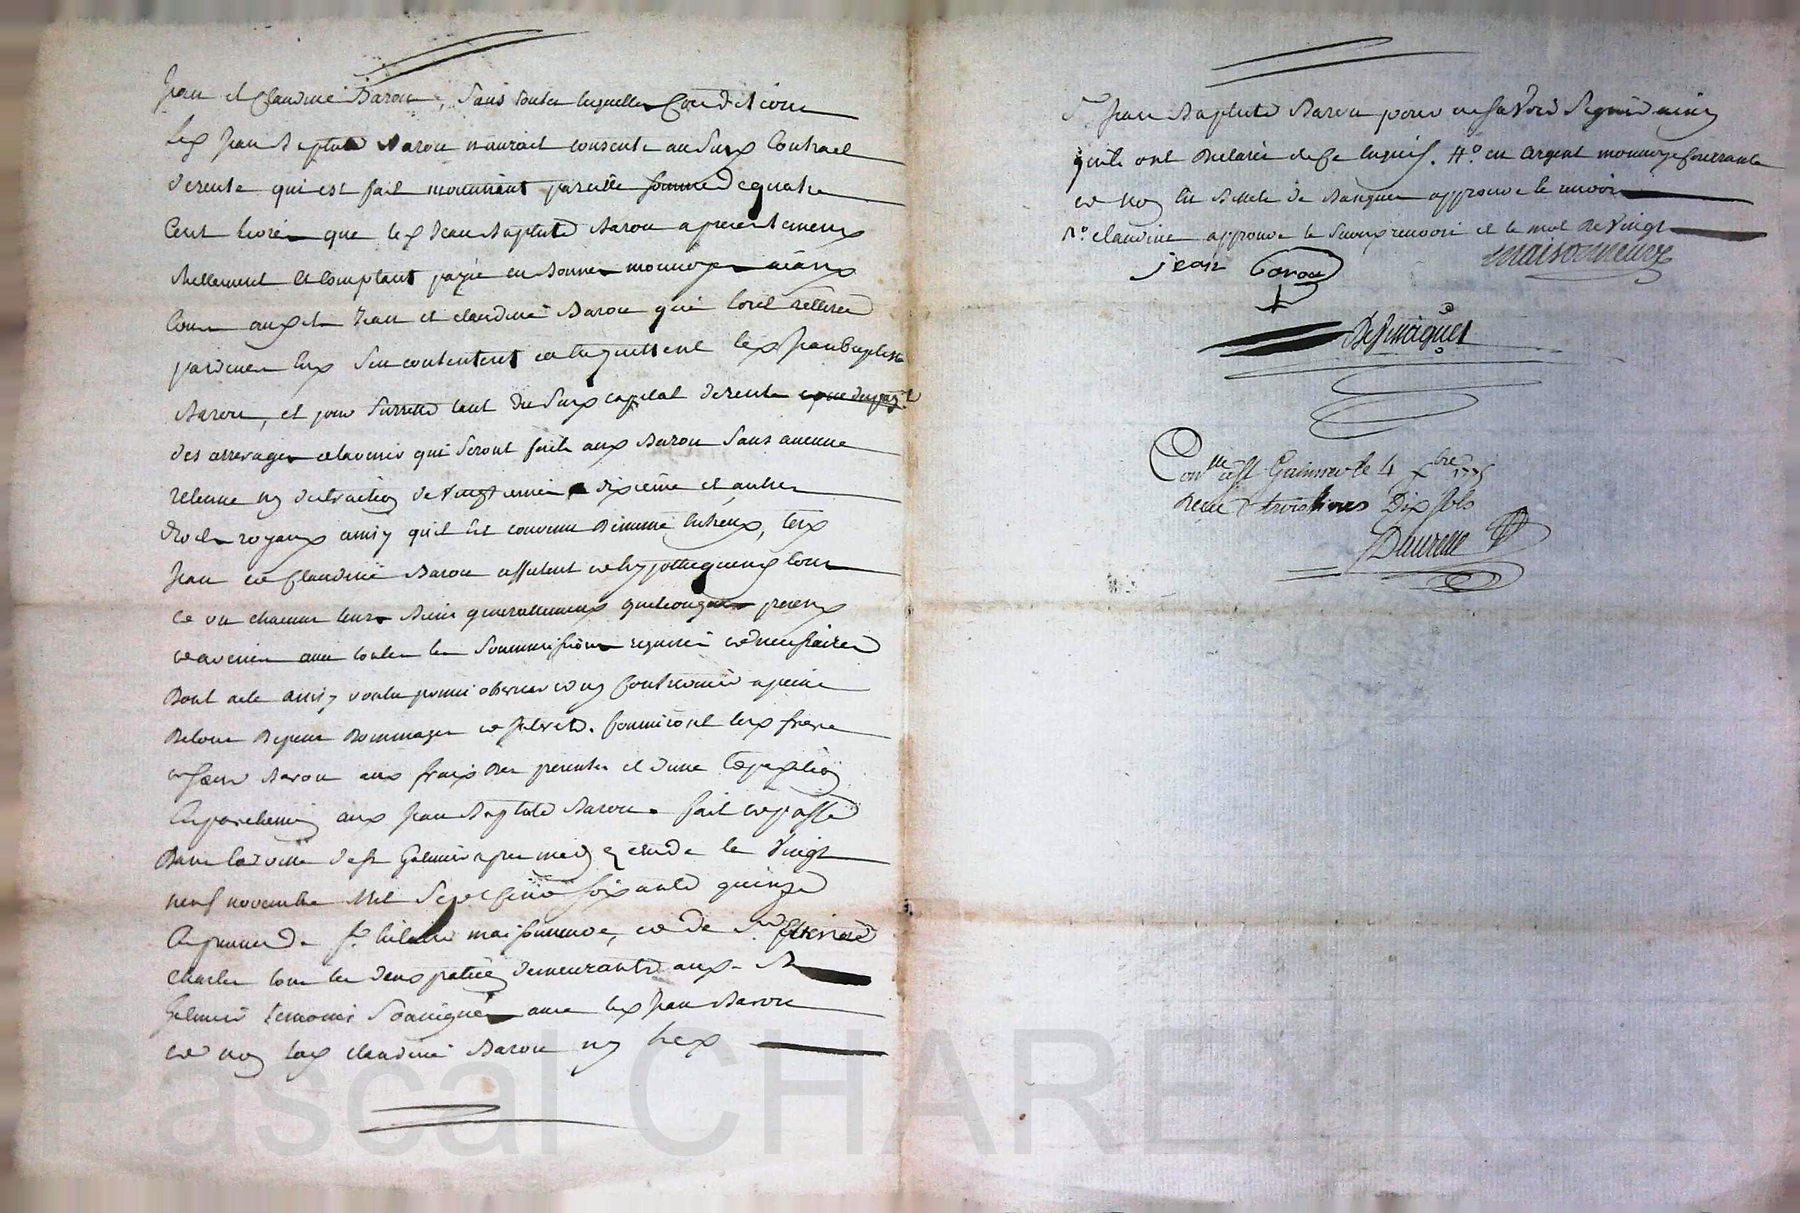 Jean et Claudine Baron, sans toutes lesquelles conditions
led. Jean Baptiste Baron n'auroit consenti au susd. Contract
de rente qui est fait moiennant pareille somme de quatre
Cent livres que led. Jean Baptiste Baron a presentement
Reellement et Comptant payée en bonnes monnoyes aians
Cours auxd. Jean et Claudine Baron qui l'ont retirée
pardevers eux s'en contentent et en quittent led. Jean Baptiste
Baron, et pour surette tant du susd. capital de rente
des arrerages et avenir qui seront faits aud. Baron sans aucune
retenue ny distraction de vingtieme dixieme et autres
droits royaux ainsy qu'il est convenu
Jean et Claudine Baron affectent et hypottequent tous
et un chacuns leurs biens generalement quelconques presens
et avenir avec toutes les soummissions requises et necessaires
Dont acte ainsy voulu promis observer et ny contrevenir a peine
De tous Depens Dommages et interets. fourniront lesd. frere
et soeur Baron aux frais des presentes et d'une Expedition
En parchemin aud. Jean Baptiste Baron. fait et passé
Dans la ville de St Galmier apres midy etude le vingt
neuf novembre Mil Sept Cent soixante quinze
En presence de Sr maisonneuve, et de Sr
Charles tous les deux praticiens demeurants aud. St
Galmier temoins Soussignés avec led. Jean Baron
et non lad. Claudine Baron ny led.
Sr Jean Baptiste Baron pour ne savoir signer ainsy
qu'ils ont Declarés de ce enquis. #° en argent monnoye courrante
et non en Billets de Banque approuvé le renvoi
#° Claudine approuve le susd. renvoi et le mot De vingt
jean baron
maisonneuve
Conlle a St Galmier le 4 xbre 1775
Recu trois livres Dix sols